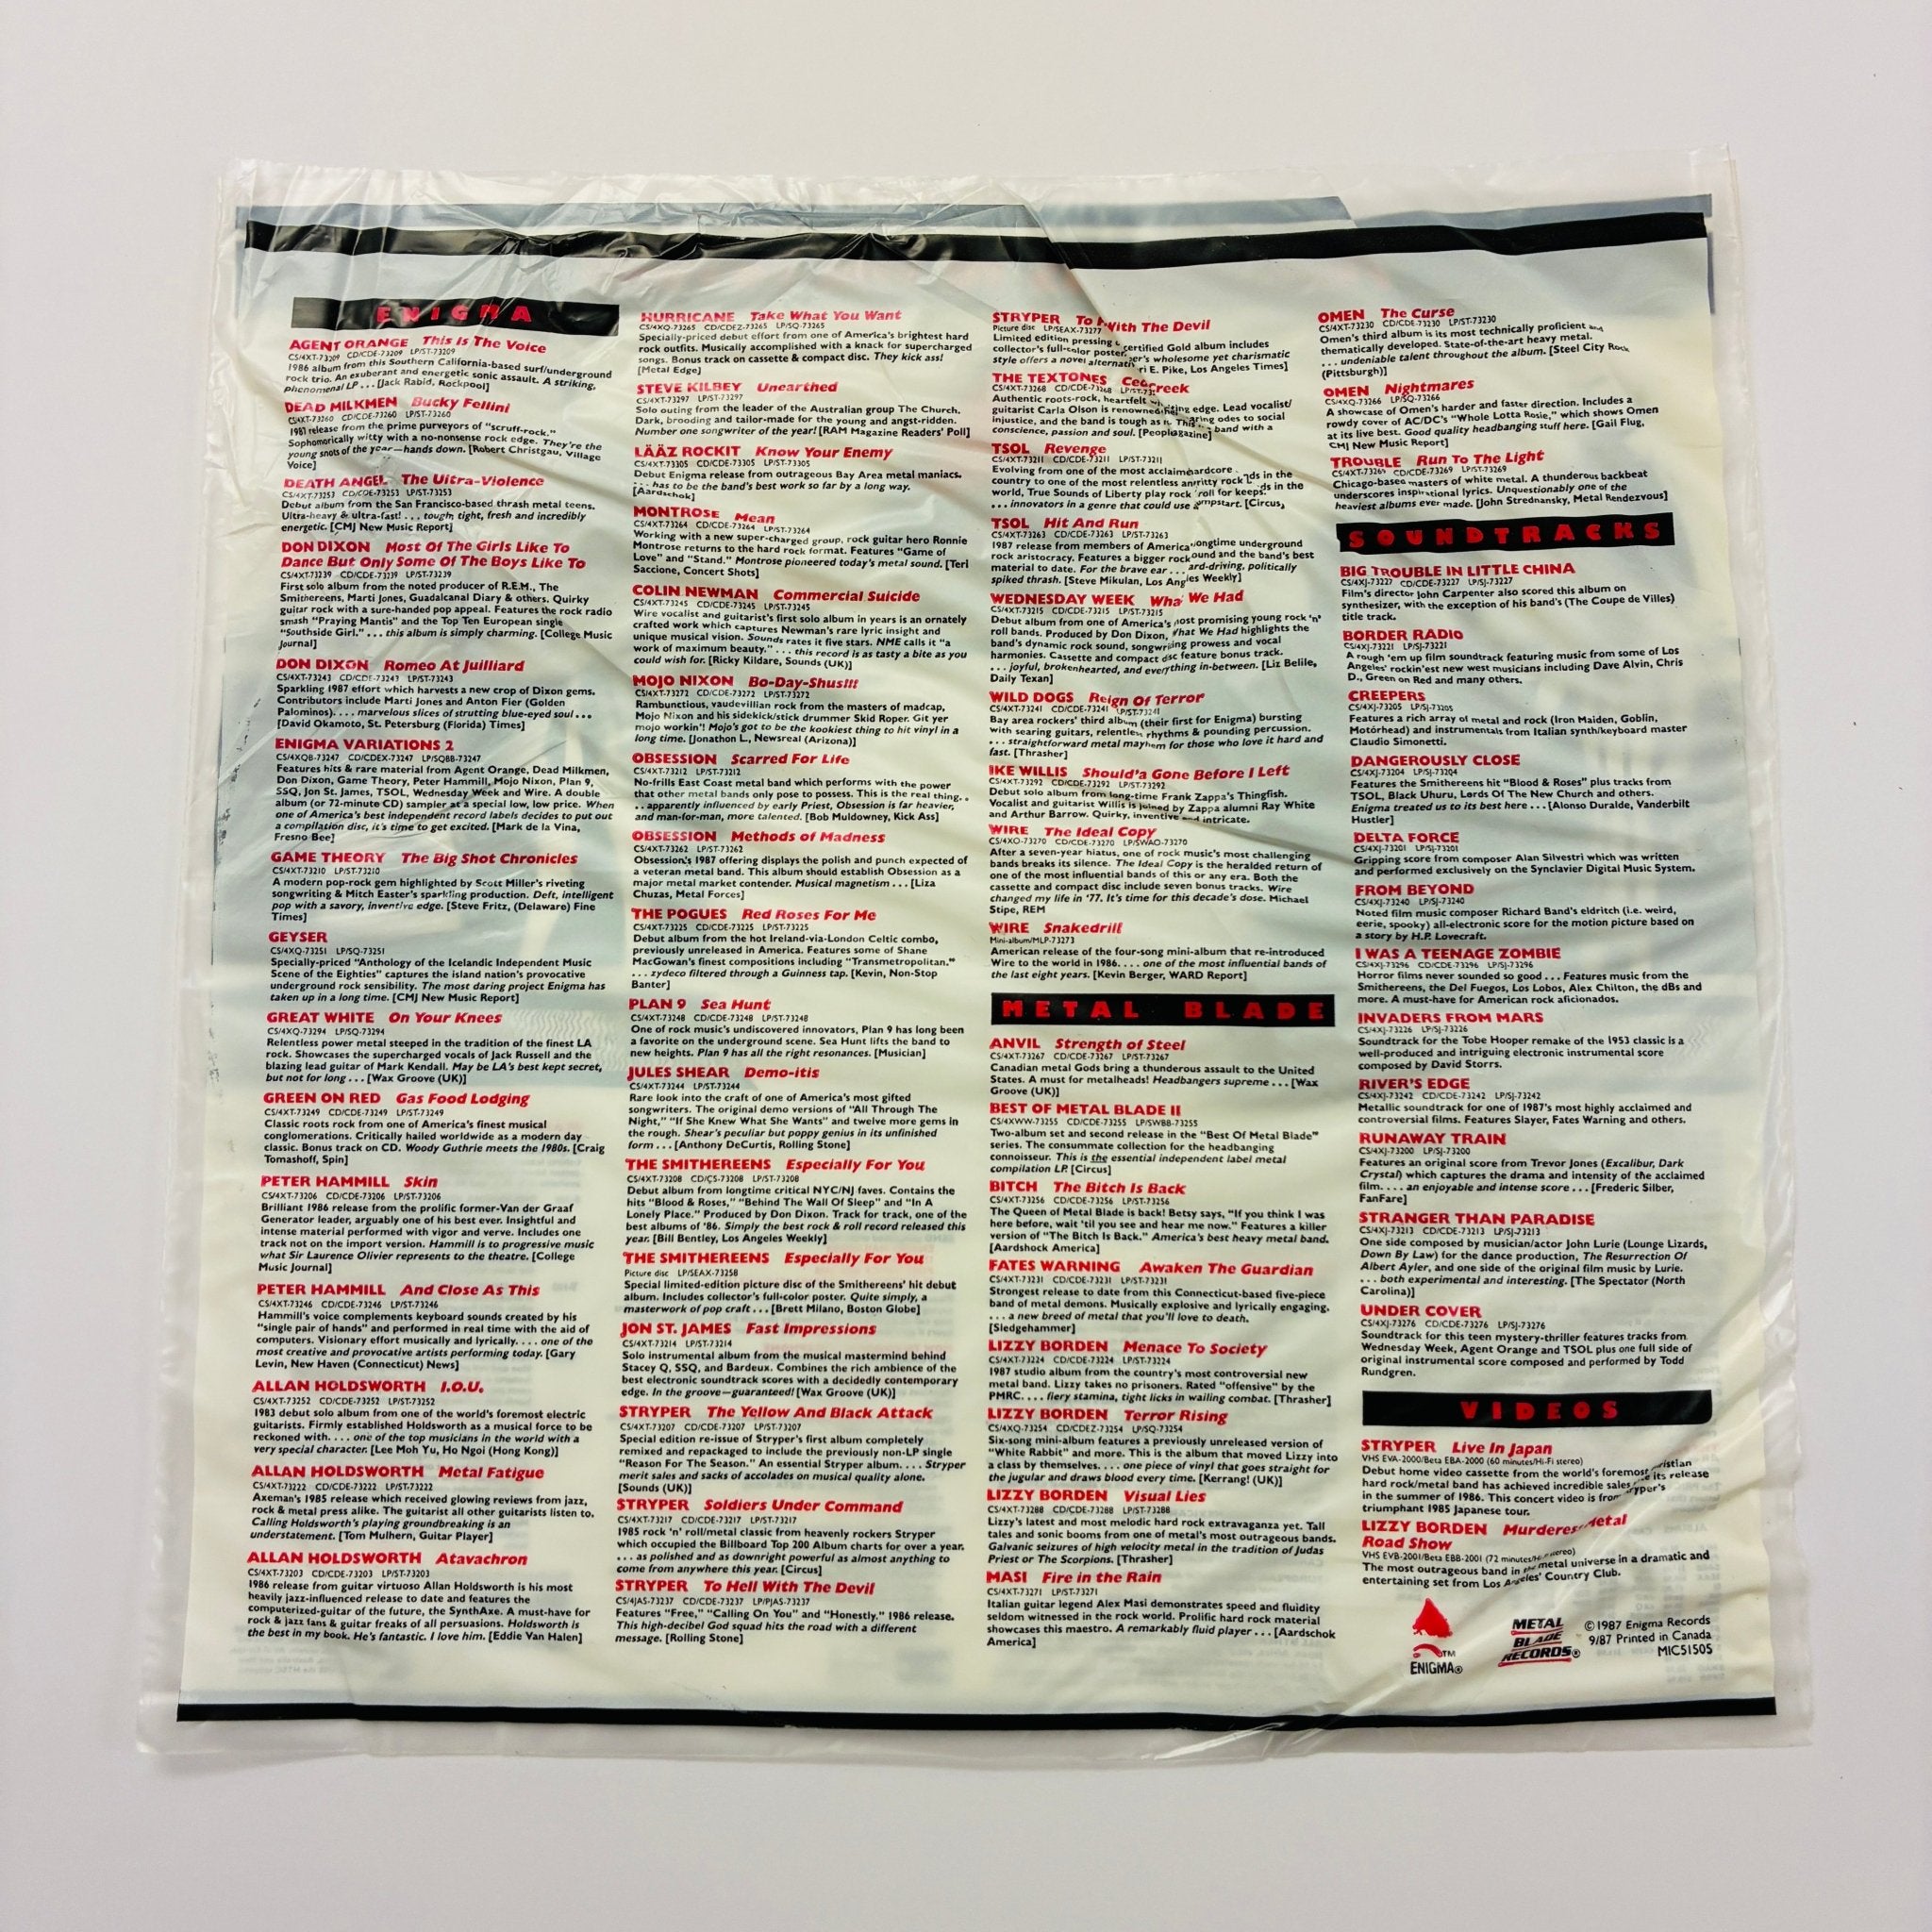 ENIGMA
AGENT ORANGE This Is The Voice
CS/4XT-73209 CD/CDE-73209 LP/ST-73209
1986 album from this Southern California-based surf/underground
rock trio. An exuberant and energetic sonic assault. A striking,
phenomenal LP . . . [Jack Rabid, Rockpool]
DEAD MILKMEN Bucky Fellini
CS/4XT-73260 CD/CDE-73260 LP/ST-73260
1987 release from the prime purveyors of "scruff-rock."
Sophomorically witty with a no-nonsense rock edge. They're the
young snots of the year—hands down. [Robert Christgau, Village
Voice]
DEATH ANGEL The Ultra-Violence
CS/4XT-73253 CD/CDE-73253 LP/ST-73253
Debut album from the San Francisco-based thrash metal teens.
Ultra-heavy & ultra-fast! . . . tough, tight, fresh and incredibly
energetic. [CMJ New Music Report]
DON DIXON Most Of The Girls Like To
Dance But Only Some Of The Boys Like To
CS/4XT-73239 CD/CDE-73239 LP/ST-73239
First solo album from the noted producer of R.E.M., The
Smithereens, Marti Jones, Guadalcanal Diary & others. Quirky
guitar rock with a sure-handed pop appeal. Features the rock radio
smash "Praying Mantis" and the Top Ten European single
"Southside Girl." . . . this album is simply charming. [College Music
Journal]
DON DIXON Romeo At Juilliard
CS/4XT-73243 CD/CDE-73243 LP/ST-73243
Sparkling 1987 effort which harvests a new crop of Dixon gems.
Contributors include Marti Jones and Anton Fier (Golden
Palominos). . . . marvelous slices of strutting blue-eyed soul . . .
[David Okamoto, St. Petersburg (Florida) Times]
ENIGMA VARIATIONS 2
CS/4XQB-73247 CD/CDEX-73247 LP/SQBB-73247
Features hits & rare material from Agent Orange, Dead Milkmen,
Don Dixon, Game Theory, Peter Hammill, Mojo Nixon, Plan 9,
SSQ, Jon St. James, TSOL, Wednesday Week and Wire. A double
album (or 72-minute CD) sampler at a special low, low price. When
one of America's best independent record labels decides to put out
a compilation disc, it's time to get excited. [Mark de la Vina,
Fresno Bee]
GAME THEORY The Big Shot Chronicles
CS/4XT-73210 LP/ST-73210
A modern pop-rock gem highlighted by Scott Miller's riveting
songwriting & Mitch Easter's sparkling production. Deft, intelligent
pop with a savory, inventive edge. [Steve Fritz, (Delaware) Fine
Times]
GEYSER
CS/4XQ-73251 LP/SQ-73251
Specially-priced "Anthology of the Icelandic Independent Music
Scene of the Eighties" captures the island nation's provocative
underground rock sensibility. The most daring project Enigma has
taken up in a long time. [CMJ New Music Report]
GREAT WHITE On Your Knees
CS/4XQ-73294 LP/SQ-73294
Relentless power metal steeped in the tradition of the finest LA
rock. Showcases the supercharged vocals of Jack Russell and the
blazing lead guitar of Mark Kendall. May be LA's best kept secret,
but not for long . . . [Wax Groove (UK)]
GREEN ON RED Gas Food Lodging
CS/4XT-73249 CD/CDE-73249 LP/ST-73249
Classic roots rock from one of America's finest musical
conglomerations. Critically hailed worldwide as a modern day
classic. Bonus track on CD. Woody Guthrie meets the 1980s. [Craig
Tomashoff, Spin]
PETER HAMMILL Skin
CS/4XT-73206 CD/CDE-73206 LP/ST-73206
Brilliant 1986 release from the prolific former-Van der Graaf
Generator leader, arguably one of his best ever. Insightful and
intense material performed with vigor and verve. Includes one
track not on the import version. Hammill is to progressive music
what Sir Laurence Olivier represents to the theatre. [College
Music Journal]
PETER HAMMILL And Close As This
CS/4XT-73246 CD/CDE-73246 LP/ST-73246
Hammill's voice complements keyboard sounds created by his
"single pair of hands" and performed in real time with the aid of
computers. Visionary effort musically and lyrically. . . . one of the
most creative and provocative artists performing today. [Gary
Levin, New Haven (Connecticut) News]
ALLAN HOLDSWORTH I.O.U.
CS/4XT-73252 CD/CDE-73252 LP/ST-73252
1983 debut solo album from one of the world's foremost electric
guitarists. Firmly established Holdsworth as a musical force to be
reckoned with. . . . one of the top musicians in the world with a
very special character. [Lee Moh Yu, Ho Ngoi (Hong Kong)]
ALLAN HOLDSWORTH Metal Fatigue
CS/4XT-73222 CD/CDE-73222 LP/ST-73222
Axeman's 1985 release which received glowing reviews from jazz,
rock & metal press alike. The guitarist all other guitarists listen to.
Calling Holdsworth's playing groundbreaking is an
understatement. [Tom Mulhern, Guitar Player]
ALLAN HOLDSWORTH Atavachron
CS/4XT-73203 CD/CDE-73203 LP/ST-73203
1986 release from guitar virtuoso Allan Holdsworth is his most
heavily jazz-influenced release to date and features the
computerized-guitar of the future, the SynthAxe. A must-have for
rock & jazz fans & guitar freaks of all persuasions. Holdsworth is
the best in my book. He's fantastic. I love him. [Eddie Van Halen]
HURRICANE Take What You Want
CS/4XQ-73265 CD/CDEZ-73265 LP/SQ-73265
Specially-priced debut effort from one of America's brightest hard
rock outfits. Musically accomplished with a knack for supercharged
songs. Bonus track on cassette & compact disc. They kick ass!
[Metal Edge]
STEVE KILBEY Unearthed
CS/4XT-73297 LP/ST-73297
Solo outing from the leader of the Australian group The Church.
Dark, brooding and tailor-made for the young and angst-ridden.
Number one songwriter of the year! [RAM Magazine Readers' Poll]
LÄÄZ ROCKIT Know Your Enemy
CS/4XT-73305 CD/CDE-73305 LP/ST-73305
Debut Enigma release from outrageous Bay Area metal maniacs.
. . . has to be the band's best work so far by a long way.
[Aardschok]
MONTROSE Mean
CS/4XT-73264 CD/CDE-73264 LP/ST-73264
Working with a new super-charged group, rock guitar hero Ronnie
Montrose returns to the hard rock format. Features "Game of
Love" and "Stand." Montrose pioneered today's metal sound. [Teri
Saccione, Concert Shots]
COLIN NEWMAN Commercial Suicide
CS/4XT-73245 CD/CDE-73245 LP/ST-73245
Wire vocalist and guitarist's first solo album in years is an ornately
crafted work which captures Newman's rare lyric insight and
unique musical vision. Sounds rates it five stars. NME calls it "a
work of maximum beauty." . . . this record is as tasty a bite as you
could wish for. [Ricky Kildare, Sounds (UK)]
MOJO NIXON Bo-Day-Shus!!!
CS/4XT-73272 CD/CDE-73272 LP/ST-73272
Rambunctious, vaudevillian rock from the masters of madcap,
Mojo Nixon and his sidekick/stick drummer Skid Roper. Git yer
mojo workin'! Mojo's got to be the kookiest thing to hit vinyl in a
long time. [Jonathon L., Newsreal (Arizona)]
OBSESSION Scarred For Life
CS/4XT-73212 LP/ST-73212
No-frills East Coast metal band which performs with the power
that other metal bands only pose to possess. This is the real thing. .
. . apparently influenced by early Priest, Obsession is far heavier,
and man-for-man, more talented. [Bob Muldowney, Kick Ass]
OBSESSION Methods of Madness
CS/4XT-73262 LP/ST-73262
Obsession's 1987 offering displays the polish and punch expected of
a veteran metal band. This album should establish Obsession as a
major metal market contender. Musical magnetism . . . [Liza
Chuzas, Metal Forces]
THE POGUES Red Roses For Me
CS/4XT-73225 CD/CDE-73225 LP/ST-73225
Debut album from the hot Ireland-via-London Celtic combo,
previously unreleased in America. Features some of Shane
MacGowan's finest compositions including "Transmetropolitan."
. . . zydeco filtered through a Guinness tap. [Kevin, Non-Stop
Banter]
PLAN 9 Sea Hunt
CS/4XT-73248 CD/CDE-73248 LP/ST-73248
One of rock music's undiscovered innovators, Plan 9 has long been
a favorite on the underground scene. Sea Hunt lifts the band to
new heights. Plan 9 has all the right resonances. [Musician]
JULES SHEAR Demo-itis
CS/4XT-73244 LP/ST-73244
Rare look into the craft of one of America's most gifted
songwriters. The original demo versions of "All Through The
Night," "If She Knew What She Wants" and twelve more gems in
the rough. Shear's peculiar but poppy genius in its unfinished
form . . . [Anthony DeCurtis, Rolling Stone]
THE SMITHEREENS Especially For You
CS/4XT-73208 CD/CS-73208 LP/ST-73208
Debut album from longtime critical NYC/NJ faves. Contains the
hits "Blood & Roses," "Behind The Wall Of Sleep" and "In A
Lonely Place." Produced by Don Dixon. Track for track, one of the
best albums of '86. Simply the best rock & roll record released this
year. [Bill Bentley, Los Angeles Weekly]
THE SMITHEREENS Especially For You
Picture disc LP/SEAX-73258
Special limited-edition picture disc of the Smithereens' hit debut
album. Includes collector's full-color poster. Quite simply, a
masterwork of pop craft . . . [Brett Milano, Boston Globe]
JON ST. JAMES Fast Impressions
CS/4XT-73214 LP/ST-73214
Solo instrumental album from the musical mastermind behind
Stacey Q, SSQ, and Bardeux. Combines the rich ambience of the
best electronic soundtrack scores with a decidedly contemporary
edge. In the groove—guaranteed! [Wax Groove (UK)]
STRYPER The Yellow And Black Attack
CS/4XT-73207 CD/CDE-73207 LP/ST-73207
Special edition re-issue of Stryper's first album completely
remixed and repackaged to include the previously non-LP single
"Reason For The Season." An essential Stryper album. . . . Stryper
merit sales and sacks of accolades on musical quality alone.
[Sounds (UK)]
STRYPER Soldiers Under Command
CS/4XT-73217 CD/CDE-73217 LP/ST-73217
1985 rock 'n' roll/metal classic from heavenly rockers Stryper
which occupied the Billboard Top 200 Album charts for over a year.
. . . as polished and as downright powerful as almost anything to
come from anywhere this year. [Circus]
STRYPER To Hell With The Devil
CS/4JAS-73237 CD/CDE-73237 LP/PJAS-73237
Features "Free," "Calling On You" and "Honestly." 1986 release.
This high-decibel God squad hits the road with a different
message. [Rolling Stone]
STRYPER To With The Devil
Picture disc LP/SEAX-73277
Limited edition pressing certified Gold album includes
collector's full-color poster. wholesome yet charismatic
style offers a novel E. Pike, Los Angeles Times]
THE TEXTONES Creek
CS/4XT-73268 CD/CDE-73268
Authentic roots-rock, heartfelt edge. Lead vocalist/
guitarist Carla Olson is renowned odes to social
injustice, and the band is tough as band with a
conscience, passion and soul.
TSOL Revenge
CS/4XT-73211 CD/CDE-73211 LP/ST-73211
Evolving from one of the most in the
country to one of the most relentless rock in the
world, True Sounds of Liberty play rock roll for keeps.
. . . innovators in a genre that could use [Circus,
TSOL Hit And Run
CS/4XT-73263 CD/CDE-73263 LP/ST-73263
1987 release from members of America longtime underground
rock aristocracy. Features a bigger rock and the band's best
material to date. For the brave ear . . . politically
spiked thrash. [Steve Mikulan, Los Angeles Weekly]
WEDNESDAY WEEK What We Had
CS/4XT-73215 CD/CDE-73215 LP/ST-73215
Debut album from one of America's most promising young rock 'n'
roll bands. Produced by Don Dixon, What We Had highlights the
band's dynamic rock sound, songwriting prowess and vocal
harmonies. Cassette and compact disc feature bonus track.
. . . joyful, brokenhearted, and everything in-between. [Liz Belile,
Daily Texan]
WILD DOGS Reign Of Terror
CS/4XT-73241 CD/CDE-73241 LP/ST-73241
Bay area rockers' third album (their first for Enigma) bursting
with searing guitars, relentless rhythms & pounding percussion.
. . . straightforward metal mayhem for those who love it hard and
fast. [Thrasher]
IKE WILLIS Should'a Gone Before I Left
CS/4XT-73292 CD/CDE-73292 LP/ST-73292
Debut solo album from long-time Frank Zappa's Thingfish.
Vocalist and guitarist Willis is joined by Zappa alumni Ray White
and Arthur Barrow. Quirky, inventive and intricate.
WIRE The Ideal Copy
CS/4XO-73270 CD/CDE-73270 LP/SWAO-73270
After a seven-year hiatus, one of rock music's most challenging
bands breaks its silence. The Ideal Copy is the heralded return of
one of the most influential bands of this or any era. Both the
cassette and compact disc include seven bonus tracks. Wire
changed my life in '77. It's time for this decade's dose. Michael
Stipe, REM
WIRE Snakedrill
Mini-album/MLP-73273
American release of the four-song mini-album that re-introduced
Wire to the world in 1986. . . . one of the most influential bands of
the last eight years. [Kevin Berger, WARD Report]
METAL BLADE
ANVIL Strength of Steel
CS/4XT-73267 CD/CDE-73267 LP/ST-73267
Canadian metal Gods bring a thunderous assault to the United
States. A must for metalheads! Headbangers supreme . . . [Wax
Groove (UK)]
BEST OF METAL BLADE II
CS/4XWW-73255 CD/CDE-73255 LP/SWBB-73255
Two-album set and second release in the "Best Of Metal Blade"
series. The consummate collection for the headbanging
connoisseur. This is the essential independent label metal
compilation LP. [Circus]
BITCH The Bitch Is Back
CS/4XT-73256 CD/CDE-73256 LP/ST-73256
The Queen of Metal Blade is back! Betsy says, "If you think I was
here before, wait 'til you see and hear me now." Features a killer
version of "The Bitch Is Back." America's best heavy metal band.
[Aardshock America]
FATES WARNING Awaken The Guardian
CS/4XT-73231 CD/CDE-73231 LP/ST-73231
Strongest release to date from this Connecticut-based five-piece
band of metal demons. Musically explosive and lyrically engaging.
. . . a new breed of metal that you'll love to death.
[Sledgehammer]
LIZZY BORDEN Menace To Society
CS/4XT-73224 CD/CDE-73224 LP/ST-73224
1987 studio album from the country's most controversial new
metal band. Lizzy takes no prisoners. Rated "offensive" by the
PMRC. . . . fiery stamina, tight licks in wailing combat. [Thrasher]
LIZZY BORDEN Terror Rising
CS/4XQ-73254 CD/CDEZ-73254 LP/SQ-73254
Six-song mini-album features a previously unreleased version of
"White Rabbit" and more. This is the album that moved Lizzy into
a class by themselves. . . . one piece of vinyl that goes straight for
the jugular and draws blood every time. [Kerrang! (UK)]
LIZZY BORDEN Visual Lies
CS/4XT-73288 CD/CDE-73288 LP/ST-73288
Lizzy's latest and most melodic hard rock extravaganza yet. Tall
tales and sonic booms from one of metal's most outrageous bands.
Galvanic seizures of high velocity metal in the tradition of Judas
Priest or The Scorpions. [Thrasher]
MASI Fire in the Rain
CS/4XT-73271 LP/ST-73271
Italian guitar legend Alex Masi demonstrates speed and fluidity
seldom witnessed in the rock world. Prolific hard rock material
showcases this maestro. A remarkably fluid player . . . [Aardschok
America]
OMEN The Curse
CS/4XT-73230 CD/CDE-73230 LP/ST-73230
Omen's third album is its most technically proficient and
thematically developed. State-of-the-art heavy metal.
. . . undeniable talent throughout the album. [Steel City Rock
(Pittsburgh)]
OMEN Nightmares
CS/4XQ-73266 LP/SQ-73266
A showcase of Omen's harder and faster direction. Includes a
rowdy cover of AC/DC's "Whole Lotta Rosie," which shows Omen
at its live best. Good quality headbanging stuff here. [Gail Flug,
CMJ New Music Report]
TROUBLE Run To The Light
CS/4XT-73269 CD/CDE-73269 LP/ST-73269
Chicago-based masters of white metal. A thunderous backbeat
underscores inspirational lyrics. Unquestionably one of the
heaviest albums ever made. [John Strednansky, Metal Rendezvous]
SOUNDTRACKS
BIG TROUBLE IN LITTLE CHINA
CS/4XJ-73227 CD/CDE-73227 LP/SJ-73227
Film's director John Carpenter also scored this album on
synthesizer, with the exception of his band's (The Coupe de Villes)
title track.
BORDER RADIO
CS/4XJ-73221 LP/SJ-73221
A rough 'em up film soundtrack featuring music from some of Los
Angeles' rockin'est new west musicians including Dave Alvin, Chris
D., Green on Red and many others.
CREEPERS
CS/4XJ-73205 LP/SJ-73205
Features a rich array of metal and rock (Iron Maiden, Goblin,
Motörhead) and instrumentals from Italian synth/keyboard master
Claudio Simonetti.
DANGEROUSLY CLOSE
CS/4XJ-73204 LP/SJ-73204
Features the Smithereens hit "Blood & Roses" plus tracks from
TSOL, Black Uhuru, Lords Of The New Church and others.
Enigma treated us to its best here . . . [Alonso Duralde, Vanderbilt
Hustler]
DELTA FORCE
CS/4XJ-73201 LP/SJ-73201
Gripping score from composer Alan Silvestri which was written
and performed exclusively on the Synclavier Digital Music System.
FROM BEYOND
CS/4XJ-73240 LP/SJ-73240
Noted film music composer Richard Band's eldritch (i.e. weird,
eerie, spooky) all-electronic score for the motion picture based on
a story by H.P. Lovecraft.
I WAS A TEENAGE ZOMBIE
CS/4XJ-73296 CD/CDE-73296 LP/SJ-73296
Horror films never sounded so good . . . Features music from the
Smithereens, the Del Fuegos, Los Lobos, Alex Chilton, the dBs and
more. A must-have for American rock aficionados.
INVADERS FROM MARS
CS/4XJ-73226 LP/SJ-73226
Soundtrack for the Tobe Hooper remake of the 1953 classic is a
well-produced and intriguing electronic instrumental score
composed by David Storrs.
RIVER'S EDGE
CS/4XJ-73242 CD/CDE-73242 LP/SJ-73242
Metallic soundtrack for one of 1987's most highly acclaimed and
controversial films. Features Slayer, Fates Warning and others.
RUNAWAY TRAIN
CS/4XJ-73200 LP/SJ-73200
Features an original score from Trevor Jones (Excalibur, Dark
Crystal) which captures the drama and intensity of the acclaimed
film. . . . an enjoyable and intense score . . . [Frederic Silber,
FanFare]
STRANGER THAN PARADISE
CS/4XJ-73213 CD/CDE-73213 LP/SJ-73213
One side composed by musician/actor John Lurie (Lounge Lizards,
Down By Law) for the dance production, The Resurrection Of
Albert Ayler, and one side of the original film music by Lurie.
. . . both experimental and interesting. [The Spectator (North
Carolina)]
UNDER COVER
CS/4XJ-73276 CD/CDE-73276 LP/SJ-73276
Soundtrack for this teen mystery-thriller features tracks from
Wednesday Week, Agent Orange and TSOL plus one full side of
original instrumental score composed and performed by Todd
Rundgren.
VIDEOS
STRYPER Live In Japan
VHS EVA-2000/Beta EBA-2000 (60 minutes/Hi-Fi stereo)
Debut home video cassette from the world's foremost
hard rock/metal band has achieved incredible sales its release
in the summer of 1986. This concert video is from Stryper's
triumphant 1985 Japanese tour.
LIZZY BORDEN Murderess Metal
Road Show
VHS EVB-2001/Beta EBB-2001 (72 minutes/Hi-Fi stereo)
The most outrageous band in the metal universe in a dramatic and
entertaining set from Los Angeles' Country Club.
TM
ENIGMA®
METAL
BLADE
RECORDS®
©1987 Enigma Records
9/87 Printed in Canada
MIC51505